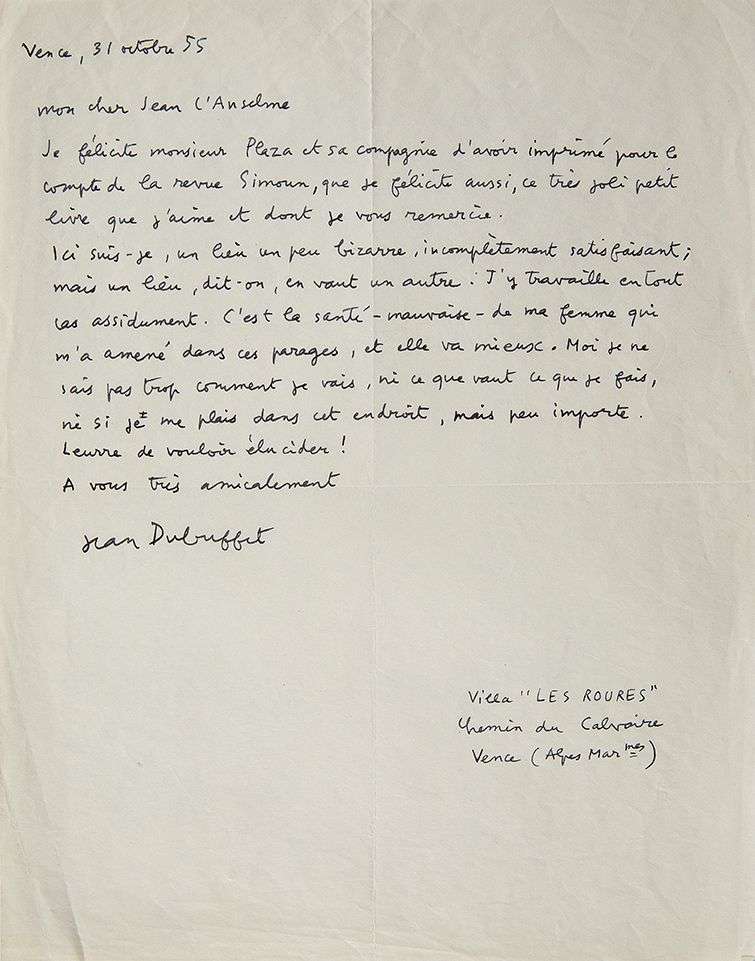 Vence, 31 octobre 55
mon cher Jean L'Anselme
Je félicite monsieur Plaza et sa compagnie d'avoir imprimé pour le
compte de la revue Simoun, que je félicite aussi, ce très joli petit
livre que j'aime et dont je vous remercie.
Ici suis-je, un lieu un peu bizarre, incomplètement satisfaisant;
mais un lieu, dit-on, en vaut un autre! J'y travaille en tout
cas assidument. C'est la santé - mauvaise - de ma femme qui
m'a amené dans ces parages, et elle va mieux. Moi je ne
sais pas trop comment je vais, ni ce que vaut ce que je fais,
ni si je me plais dans cet endroit, mais peu importe.
Leurre de vouloir élucider!
A vous très amicalement
Jean Dubuffet
Villa "LES ROURES"
Chemin du Calvaire
Vence (Alpes Marmes)